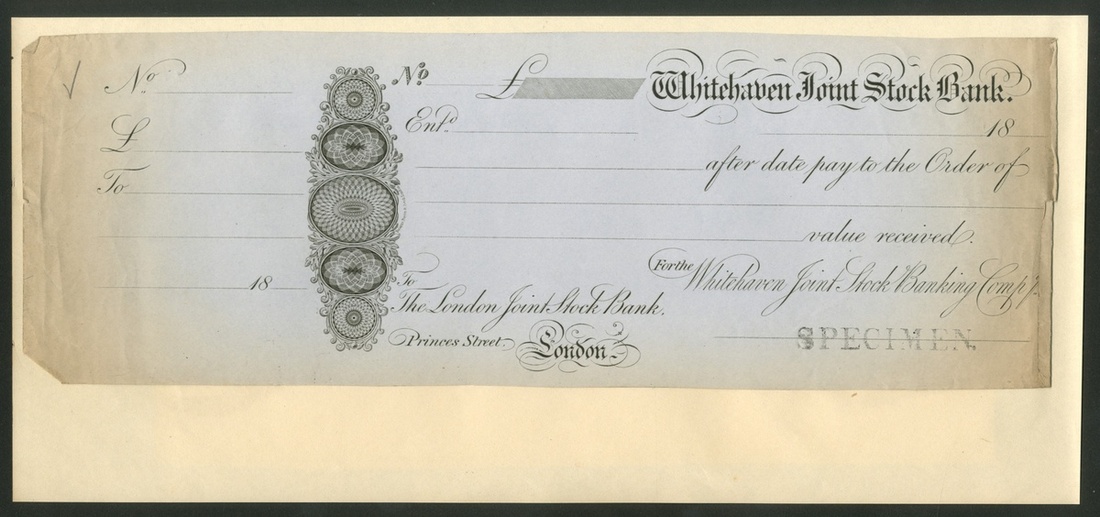 No
£
To
18
No £ Whitehaven Joint Stock Bank.
Entd. 18
after date pay to the Order of
value received.
For the Whitehaven Joint Stock Banking Compy.
To
The London Joint Stock Bank,
Princes Street. London.
SPECIMEN.